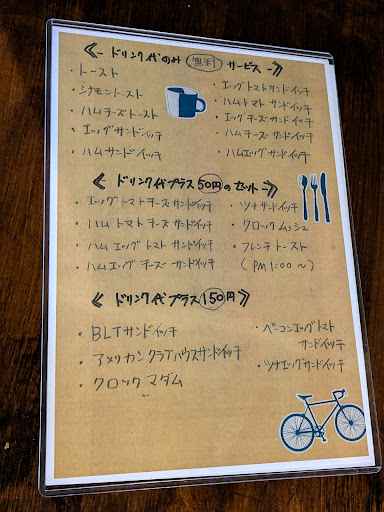 ≪-ドリンク代のみ 無料 サービス-≫
・トースト
・シナモントースト
・ハムチーズトースト
・エッグサンドイッチ
・ハムサンドイッチ
・エッグトマトサンドイッチ
・ハムトマトサンドイッチ
・エッグチーズサンドイッチ
・ハムチーズサンドイッチ
・ハムエッグサンドイッチ
≪-ドリンク代プラス50円のセット-≫
・エッグトマトチーズサンドイッチ
・ハムトマトチーズサンドイッチ
・ハムエッグトマトサンドイッチ
・ハムエッグチーズサンドイッチ
・ツナサンドイッチ
・クロックムッシュ
・フレンチトースト
(PM1:00～)
≪ドリンク代プラス150円≫
・BLTサンドイッチ
・アメリカンクラブハウスサンドイッチ
・クロックマダム
・ベーコンエッグトマト
サンドイッチ
・ツナエッグサンドイッチ